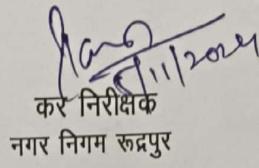 11/2024
कर निरीक्षक
नगर निगम रूद्रपुर